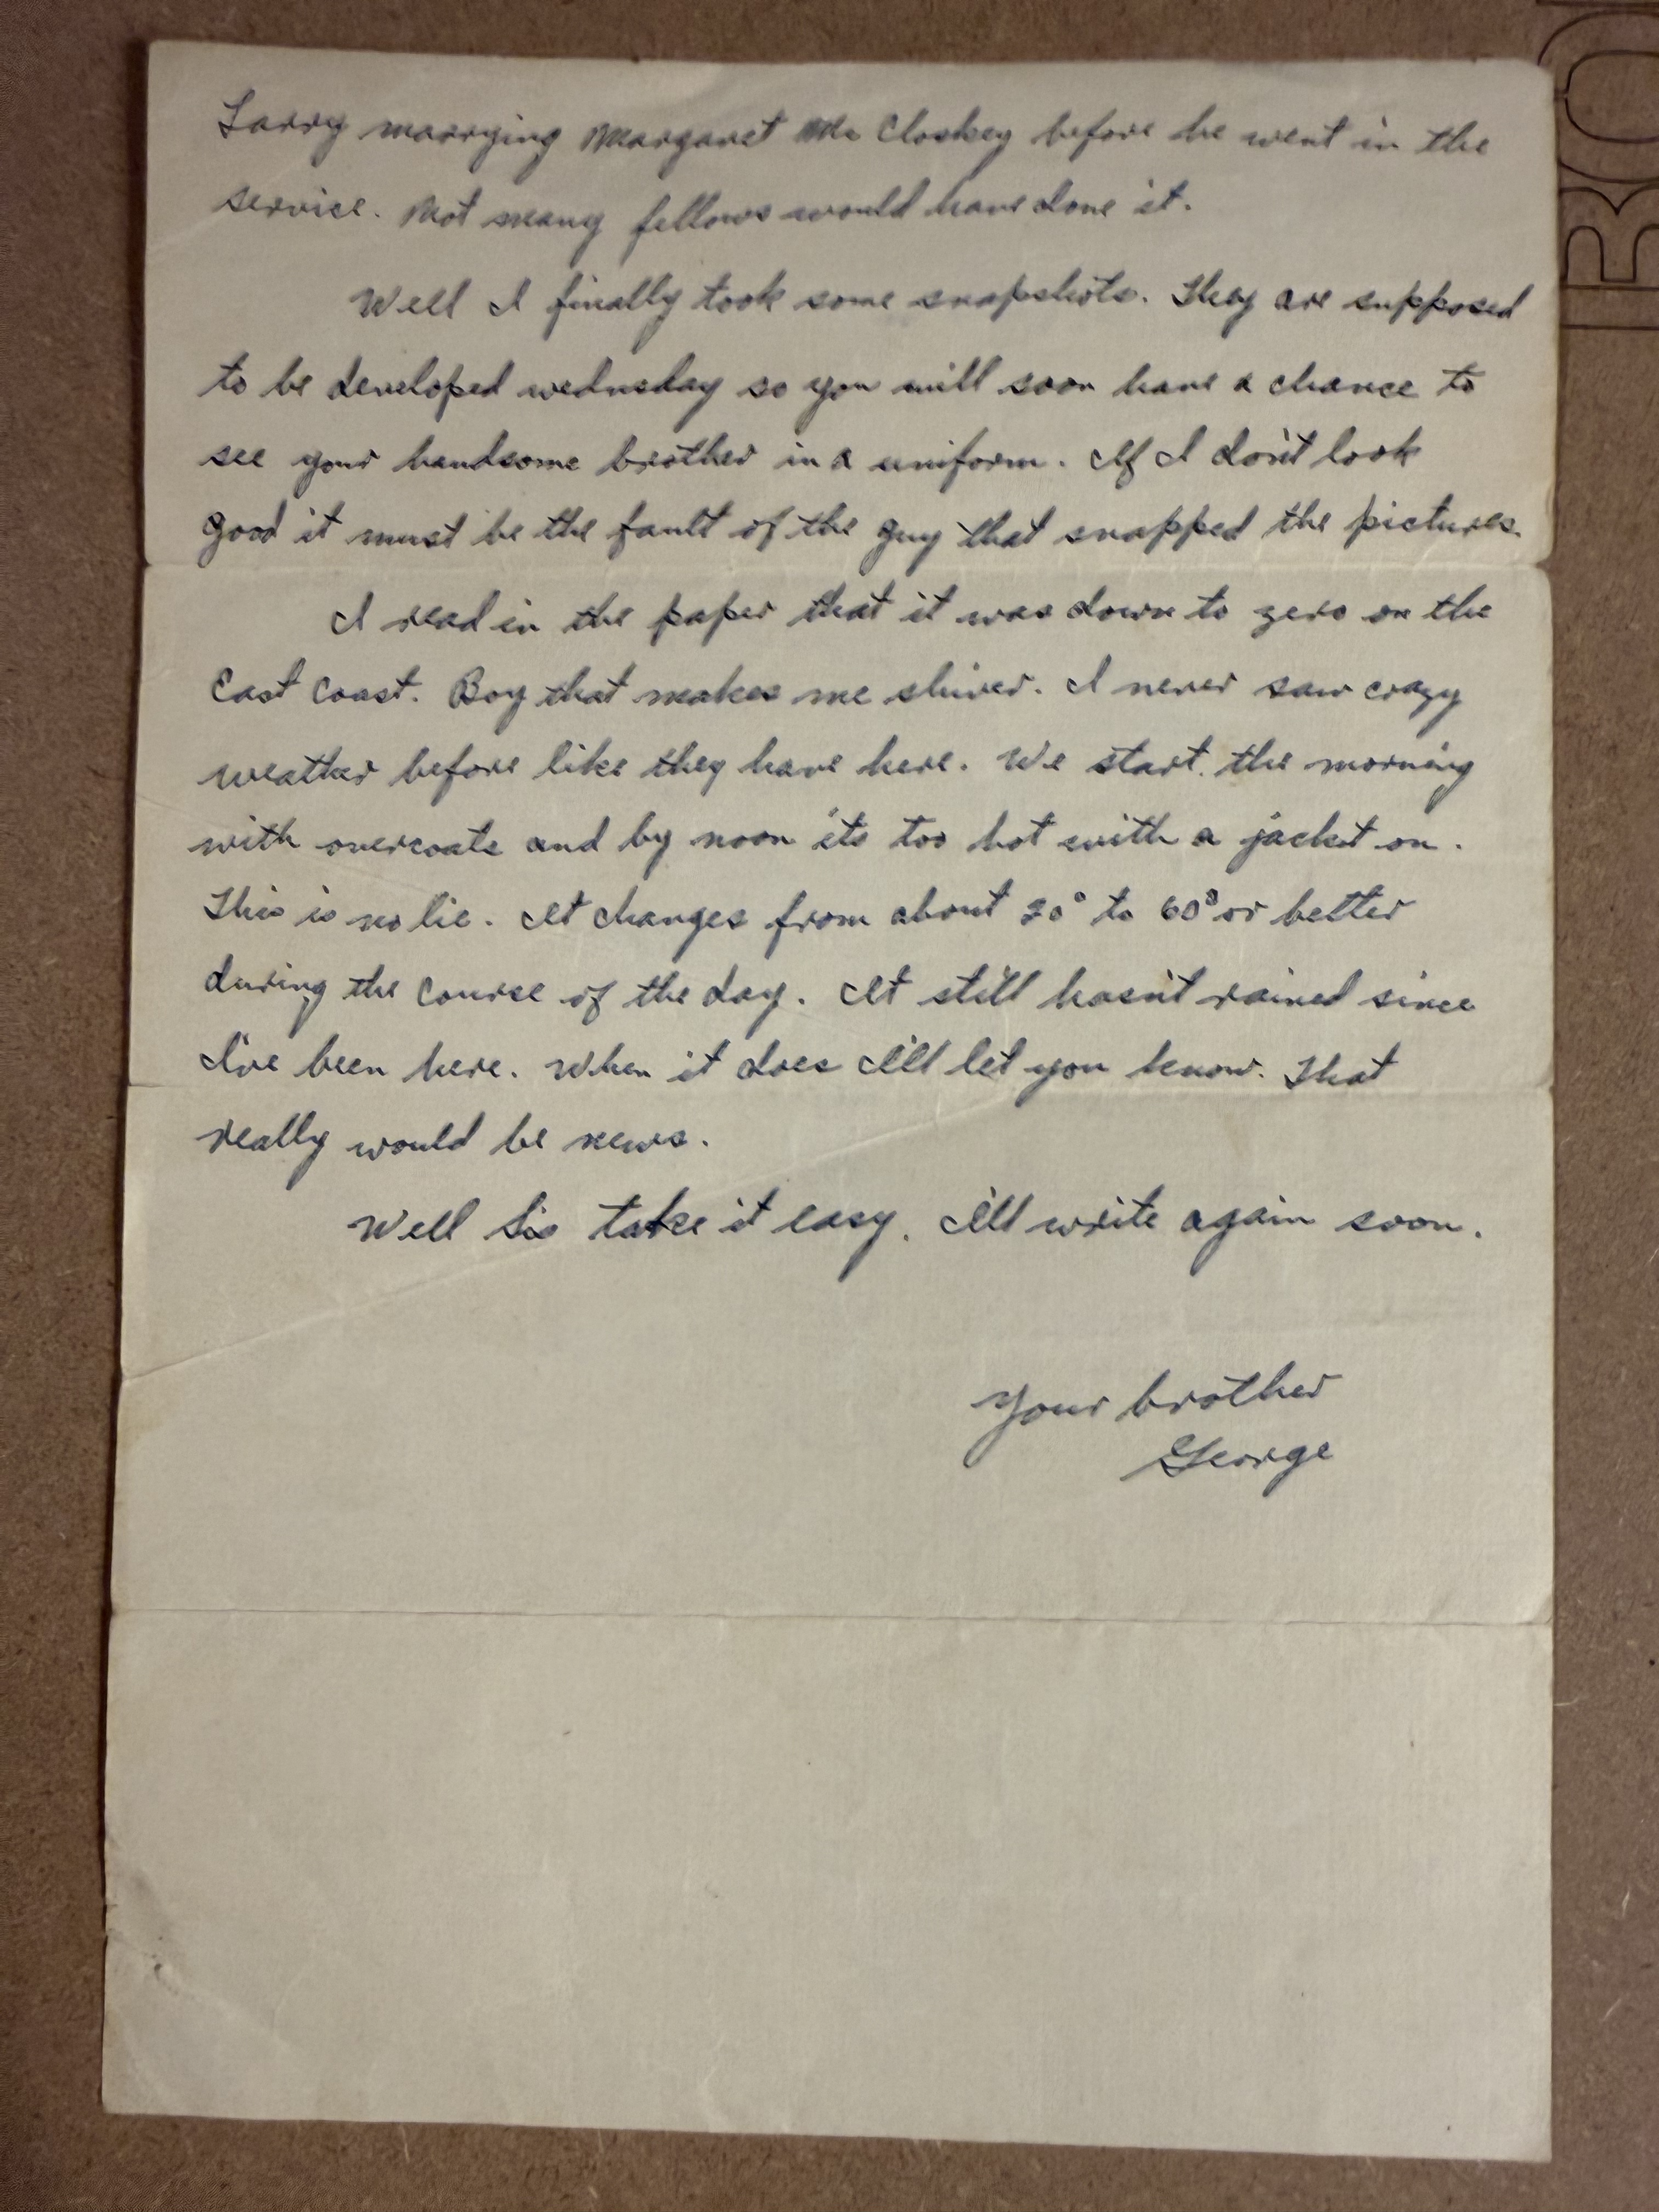 Larry marrying Margaret Mc Closkey before he went in the
service. Not many fellows would have done it.
Well I finally took some snapshots. They are supposed
to be developed wednesday so you will soon have a chance to
see your handsome brother in a uniform. If I don't look
good it must be the fault of the guy that snapped the pictures.
I read in the paper that it was down to zero on the
East Coast. Boy that makes me shiver. I never saw crazy
weather before like they have here. We start the morning
with overcoats and by noon its too hot with a jacket on.
This is no lie. It changes from about 20° to 60° or better
during the course of the day. It still hasn't rained since
I've been here. When it does I'll let you know. That
really would be news.
Well Sis take it easy. I'll write again soon.
Your brother
George
BO